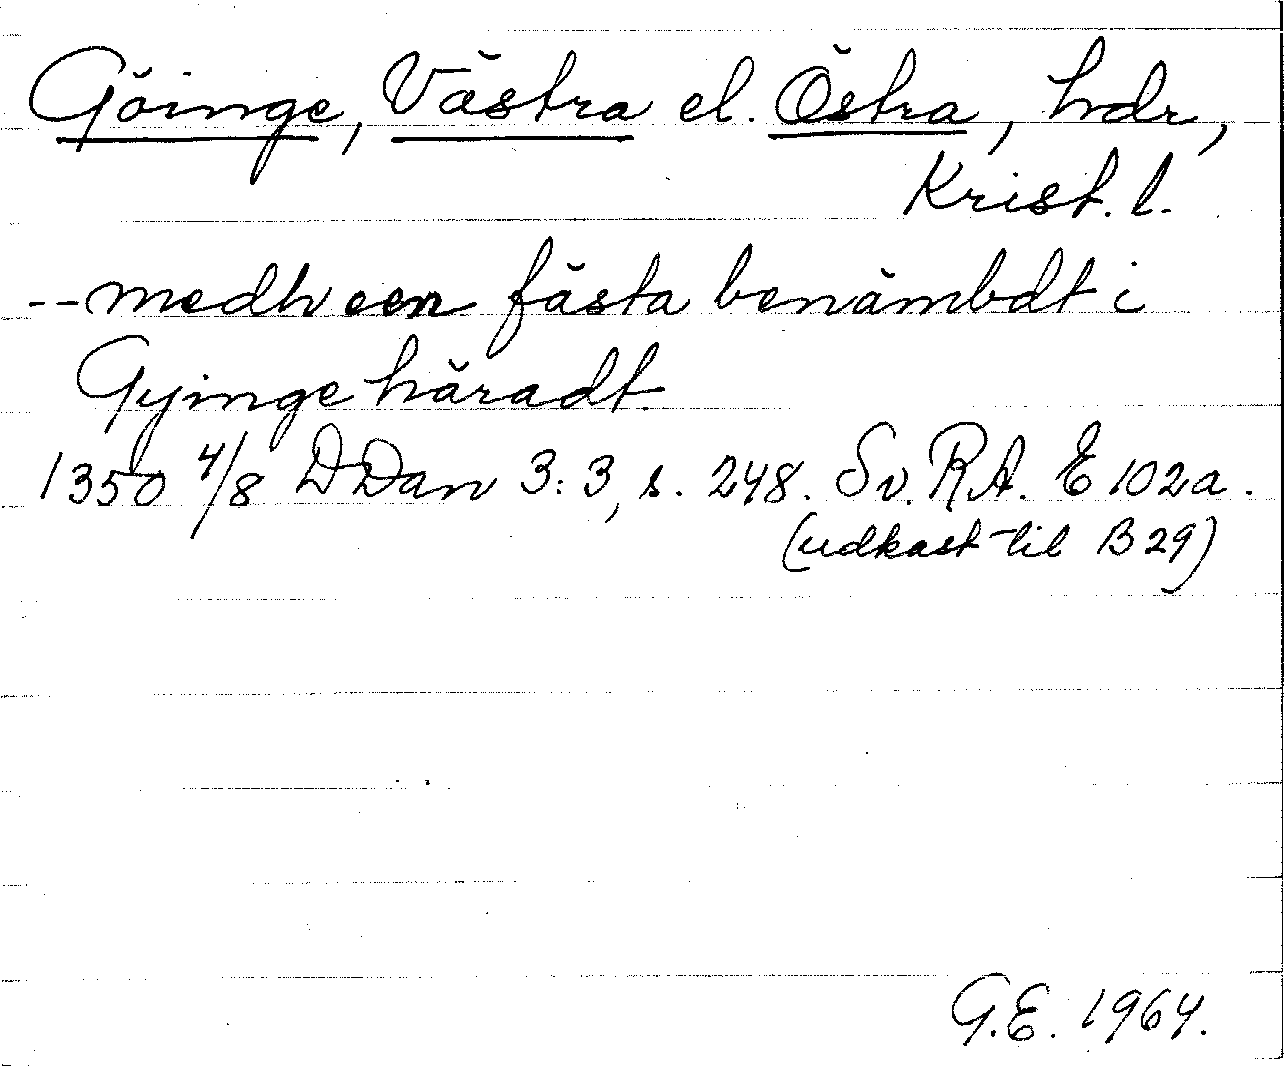 Göinge, Västra el. Östra, hdr,
Krist. l.
--medh een fästa benämbdt i
Gyinge häradt
1350 4/8 DDan 3:3, s. 248. Sv. RA. E 102a.
(udkast til B 29)
G.E. 1964.